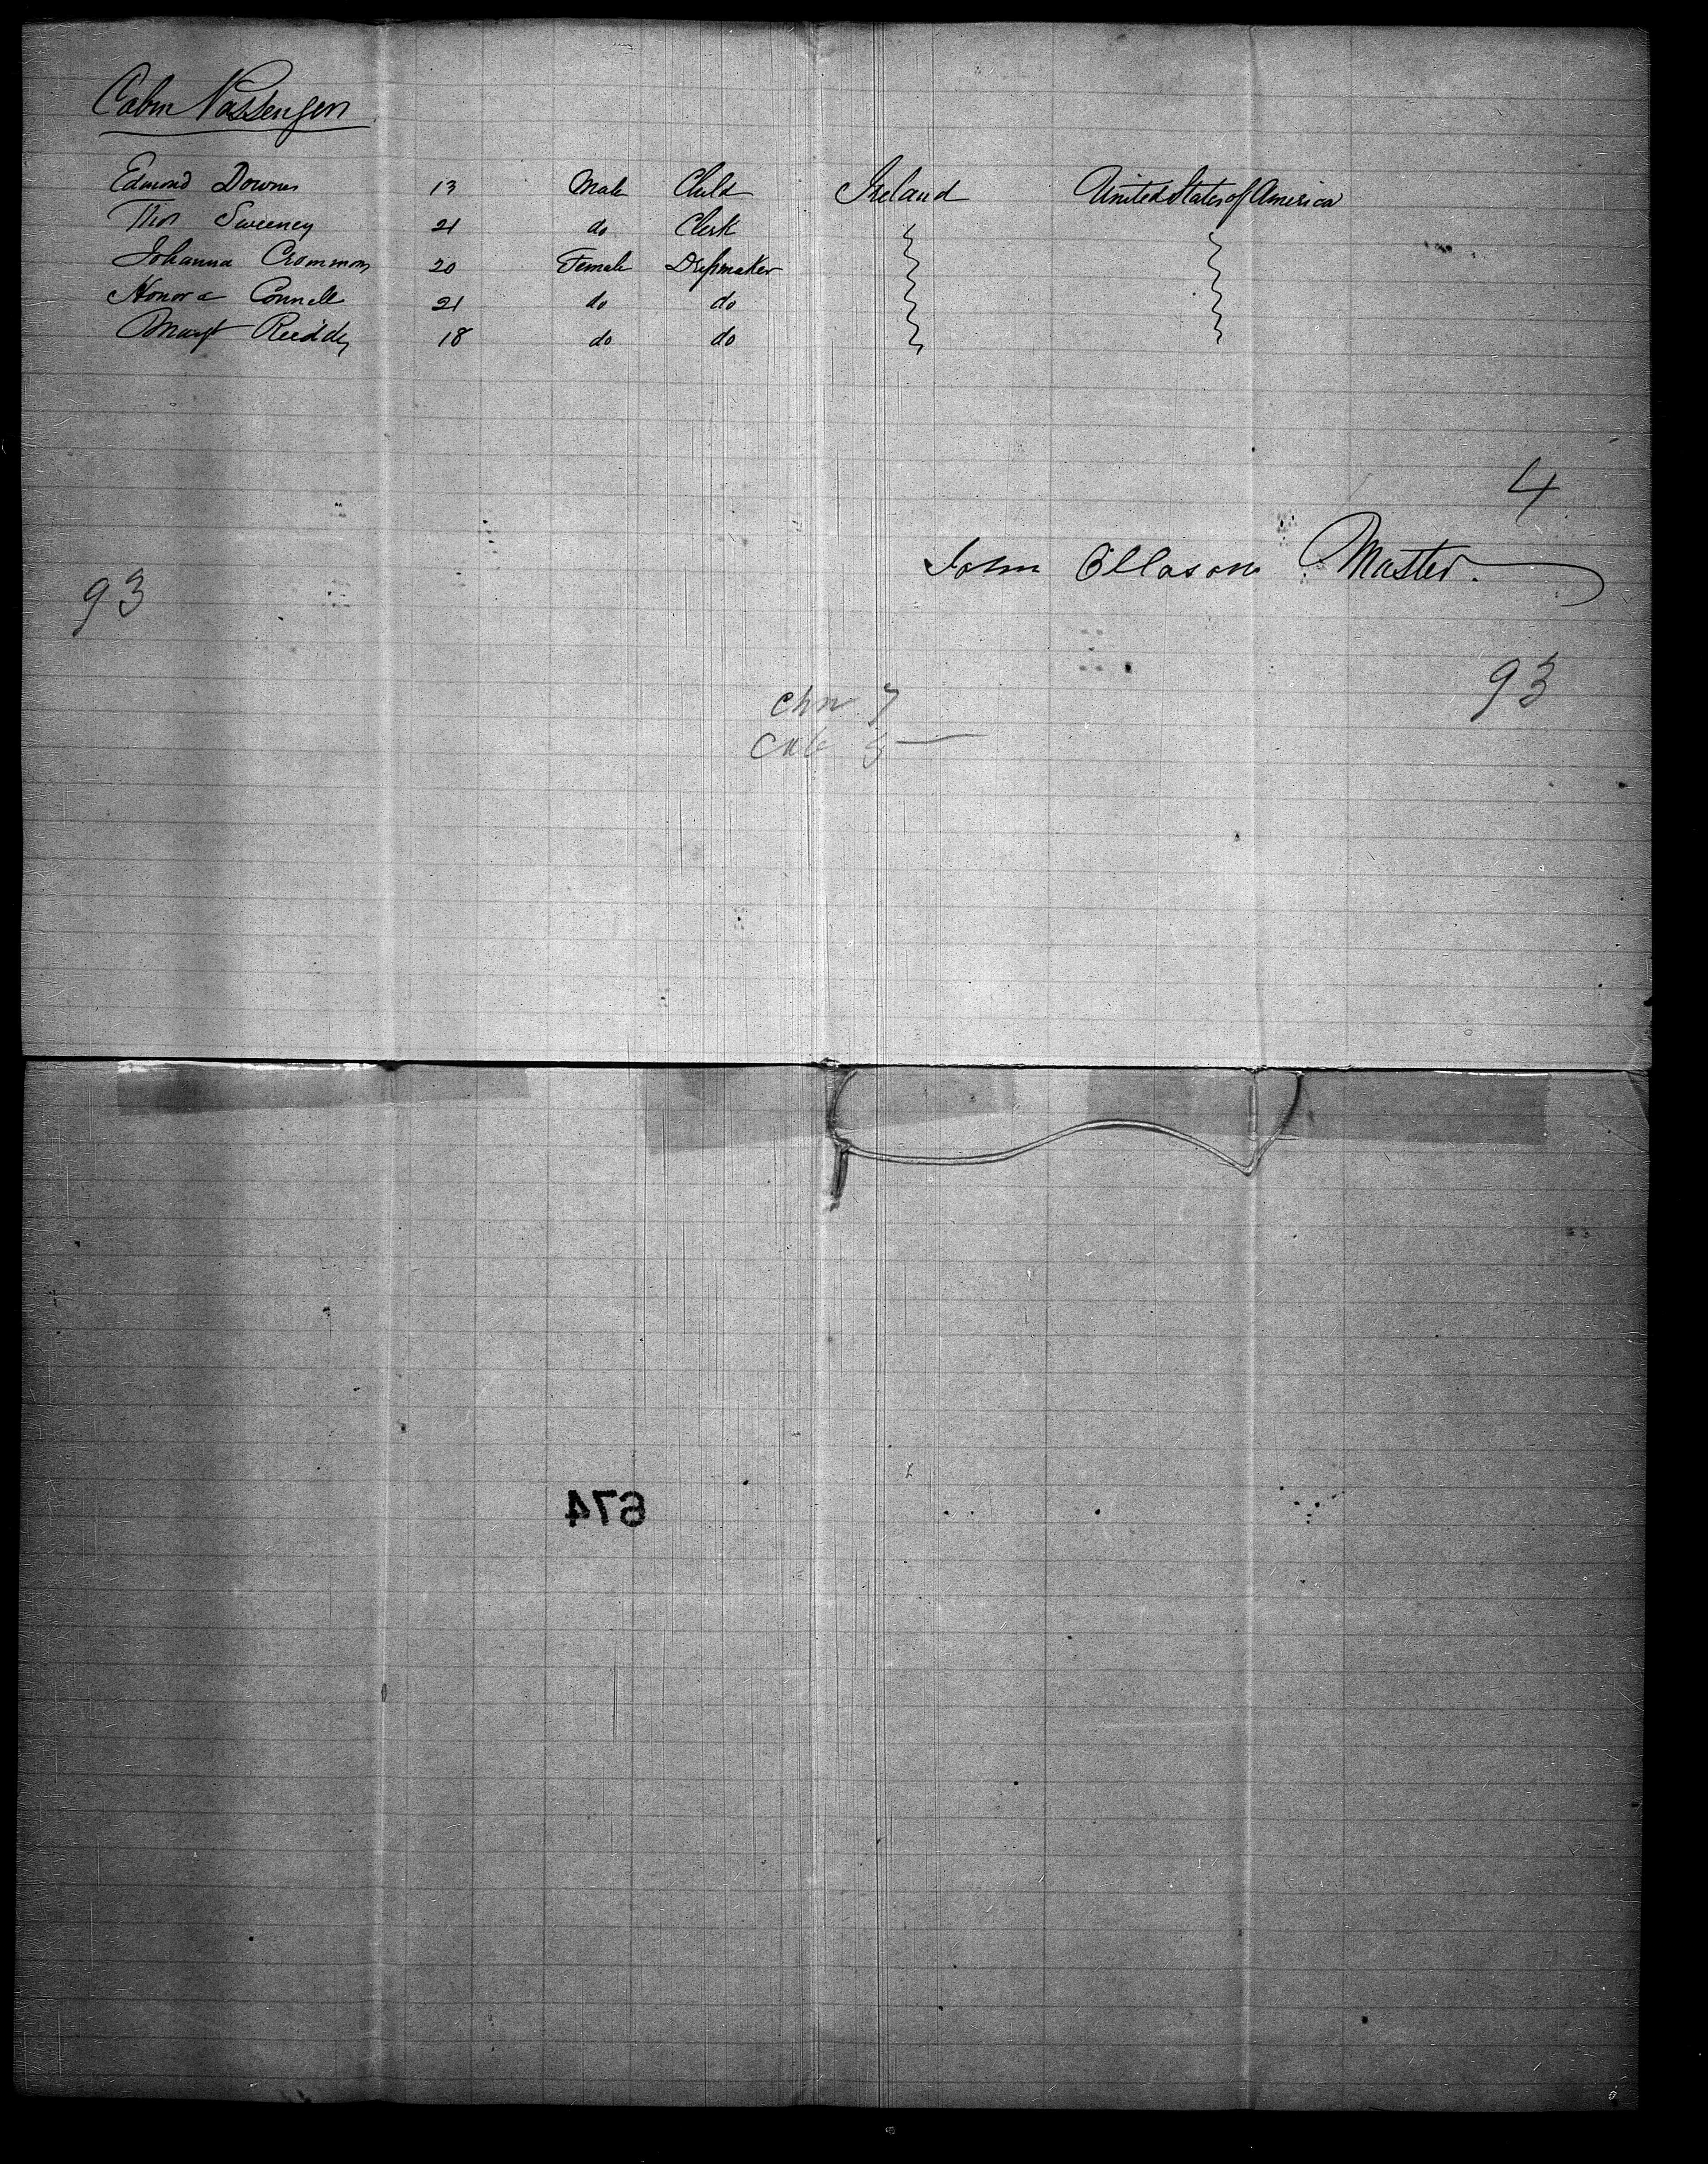 Cabin Passengers
Edmond Downes 13 Male Child Ireland United States of America
Thos Sweeney 21 do Clerk
Johanna Crommon 20 Female Dressmaker
Honora Connell 21 do do
Margt Reiddy 18 do do
4
John Ollason Master.
93
93
Chn 7
Cab 5
674